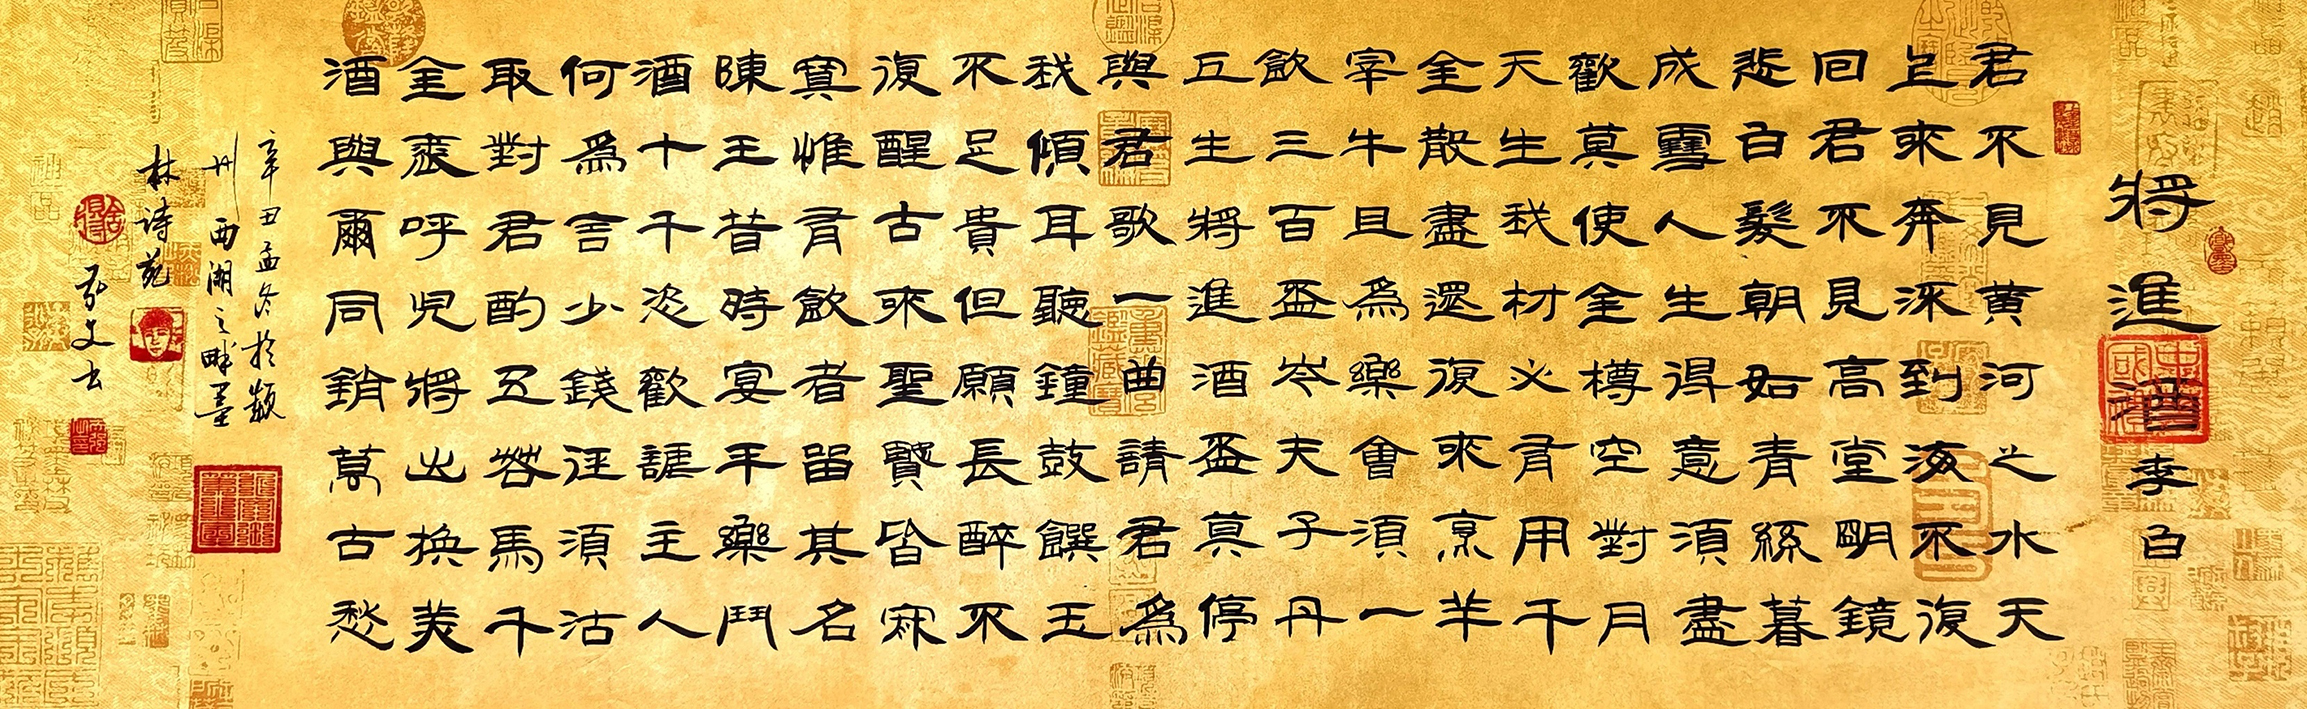 將進酒 李白
君不見黄河之水天
上來奔流到海不復
回君不見高堂明鏡
悲白髮朝如青絲暮
成雪人生得意須盡
歡莫使金樽空對月
天生我材必有用千
金散盡還復來烹羊
宰牛且為樂會須一
飲三百盃岑夫子丹
丘生將進酒盃莫停
與君歌一曲請君為
我傾耳聽鐘鼓饌玉
不足貴但願長醉不
復醒古來聖賢皆寂
寞惟有飲者留其名
陳王昔時宴平樂鬥
酒十千恣歡謔主人
何為言少錢徑須沽
取對君酌五花馬千
金裘呼兒將出換美
酒與爾同銷萬古愁
辛丑孟冬於潁
州西湖之畔墨
林詩苑
敬文书